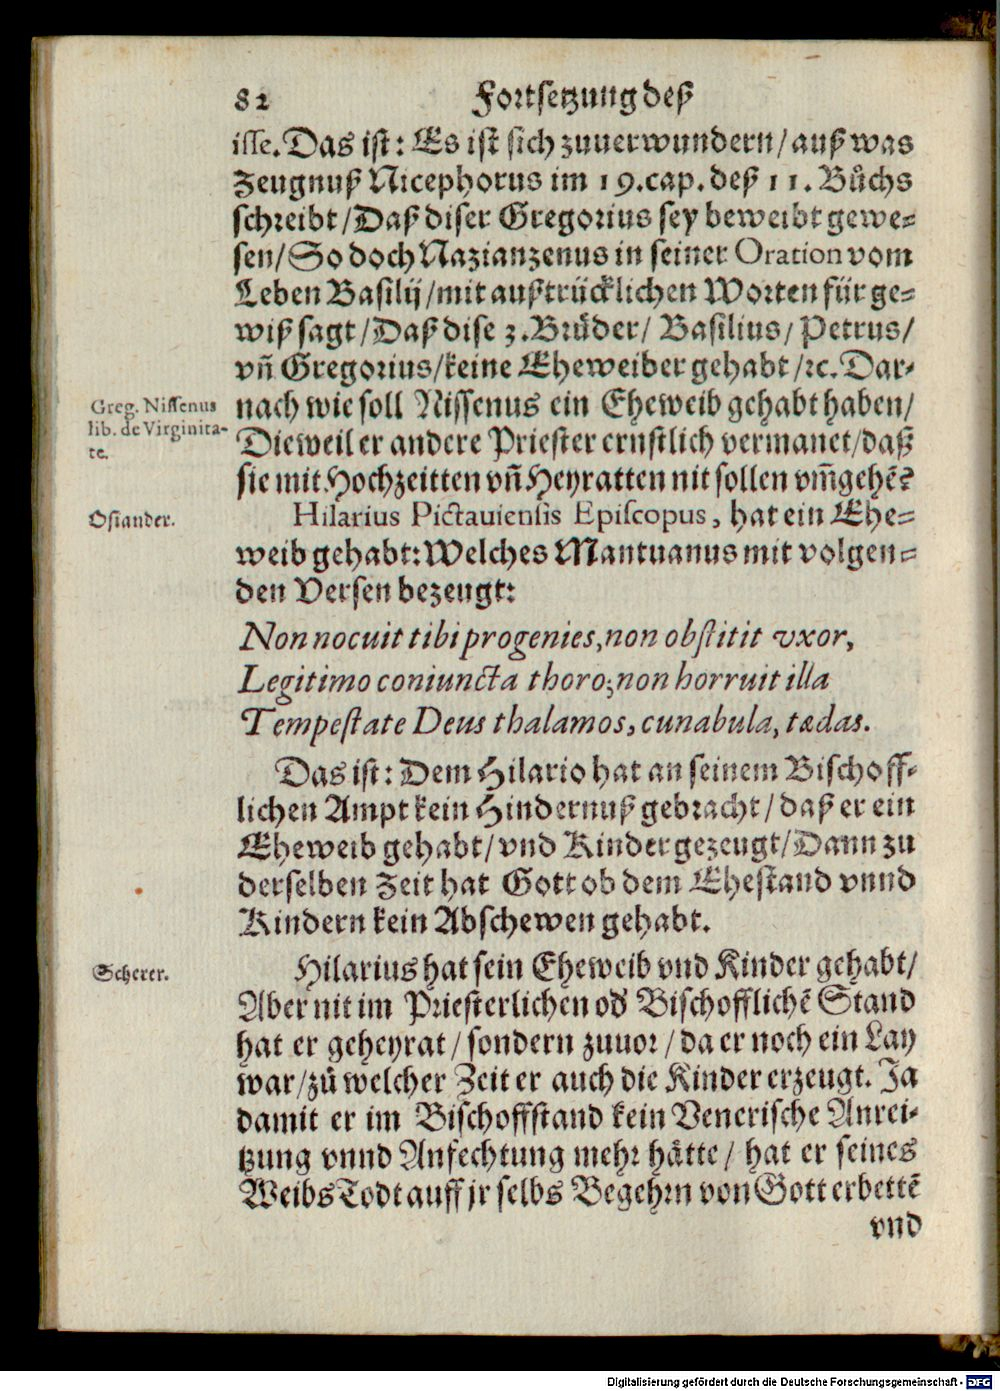 82 Fortsetzung deß
isse. Das ist: Es ist sich zuuerwundern/ auß was
Zeugnuß Nicephorus im 19. cap. deß 11. Bůchs
schreibt/ Daß diser Gregorius sey beweibt gewe-
sen/ So doch Nazianzenus in seiner Oration vom
Leben Basilij/ mit außtrücklichen Worten für ge-
wiß sagt/ Daß dise 3. Brůder/ Basilius/ Petrus/
vñ Gregorius/ keine Eheweiber gehabt/ ꝛc. Dar-
nach wie soll Nissenus ein Eheweib gehabt haben/
Dieweil er andere Priester ernstlich vermanet/ daß
sie mit Hochzeitten vñ Heyratten nit sollen vm̃gehẽ?
Greg. Nissenus
lib. de Virginita-
te.
Osiander.
Hilarius Pictauiensis Episcopus, hat ein Ehe-
weib gehabt: Welches Mantuanus mit volgen-
den Versen bezeugt:
Non nocuit tibi progenies, non obstitit vxor,
Legitimo coniuncta thoro; non horruit illa
Tempestate Deus thalamos, cunabula, tædas.
Das ist: Dem Hilario hat an seinem Bischoff-
lichen Ampt kein Hindernuß gebracht/ daß er ein
Eheweib gehabt/ vnd Kinder gezeugt/ Dann zu
derselben Zeit hat Gott ob dem Ehestand vnnd
Kindern kein Abschewen gehabt.
Scherer.
Hilarius hat sein Eheweib vnd Kinder gehabt/
Aber nit im Priesterlichen od' Bischofflichẽ Stand
hat er geheyrat/ sondern zuuor/ da er noch ein Lay
war/ zů welcher Zeit er auch die Kinder erzeugt. Ja
damit er im Bischoffstand kein Venerische Anrei-
tzung vnnd Anfechtung mehr hätte/ hat er seines
Weibs Todt auff jr selbs Begehrn von Gott erbettẽ
vnd
Digitalisierung gefördert durch die Deutsche Forschungsgemeinschaft - DFG